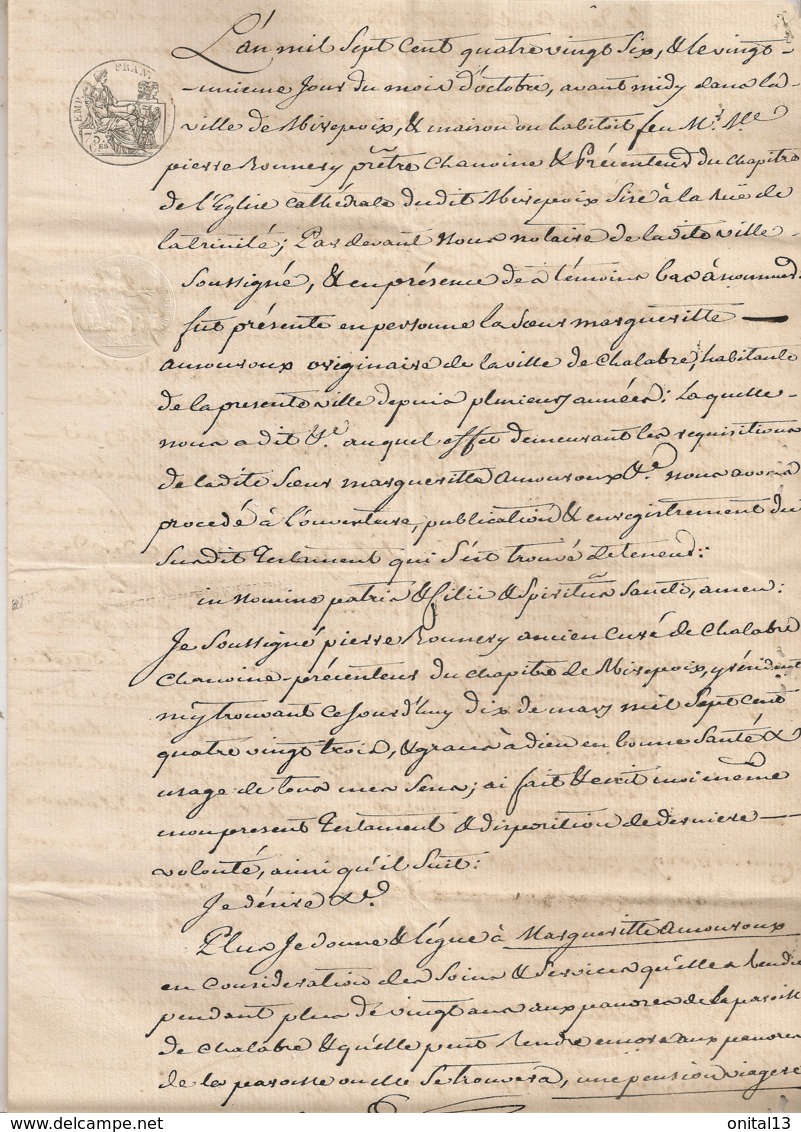 L'an mil Sept Cent quatre vingt Six, & le vingt -
- unieme Jour du mois d'octobre, avant midy dans la
ville de Mirepoix, & maison ou habitoit feu Mr. Me.
pierre Rounery prêtre Chanoine & Précenteur du Chapitre
de l'Eglise Cathédrale dudit Mirepoix Sise à la Ruë de
la trinité; Par devant Nous notaire de ladite ville -
Soussigné, & en présence des témoins bas à nommer.
fut présente en personne la Sœur margueritte —
amouroux originaire de la ville de Chalabre, habitante
de la presente ville depuis plusieurs années: Laquelle -
nous a dit &c. auquel effet demeurant les requisitions
de ladite Sœur margueritte amouroux &c. nous avons
procedé à l'ouverture, publication & enregistrement du
Susdit Testament qui S'est trouvé de teneur:
in nomine patris & filii & Spiritus Sancti, amen:
Je Soussigné pierre Rounery ancien Curé de Chalabre
Chanoine-précenteur du chapitre de Mirepoix, y résident
m'y trouvant ce Jourd'huy dix de mars mil Sept Cent
quatre vingt trois, & graces à dieu en bonne Santé &
usage de tous mes Sens; ai fait & écrit moi même
mon present Testament & disposition de derniere —
volonté, ainsi qu'il Suit:
Je désire &c.
Plus Je donne & légue à Margueritte amouroux
en Consideration des Soins & Services qu'elle a Rendu
pendant plus de vingt ans aux pauvres de la paroisse
de Chalabre & qu'elle peut Rendre encore aux pauvres
de la paroisse ou elle Se trouvera, une pension viagere
onital13